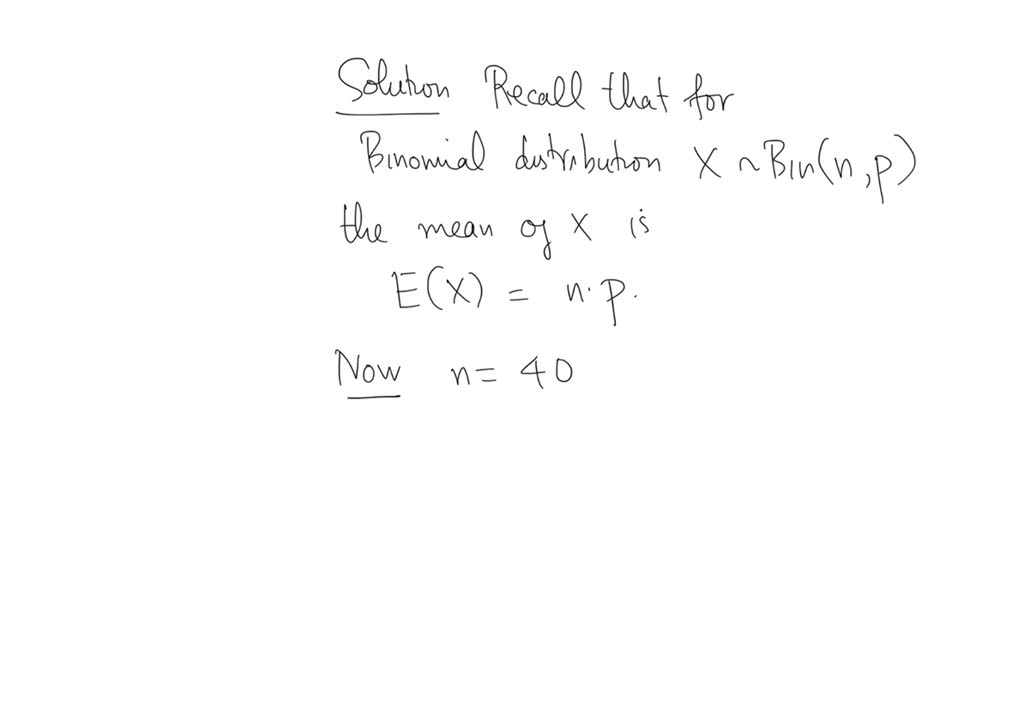 Solution Recall that for
Binomial distribution X ~ Bin(n,p)
the mean of X is
E(X) = n·p.
Now n = 40